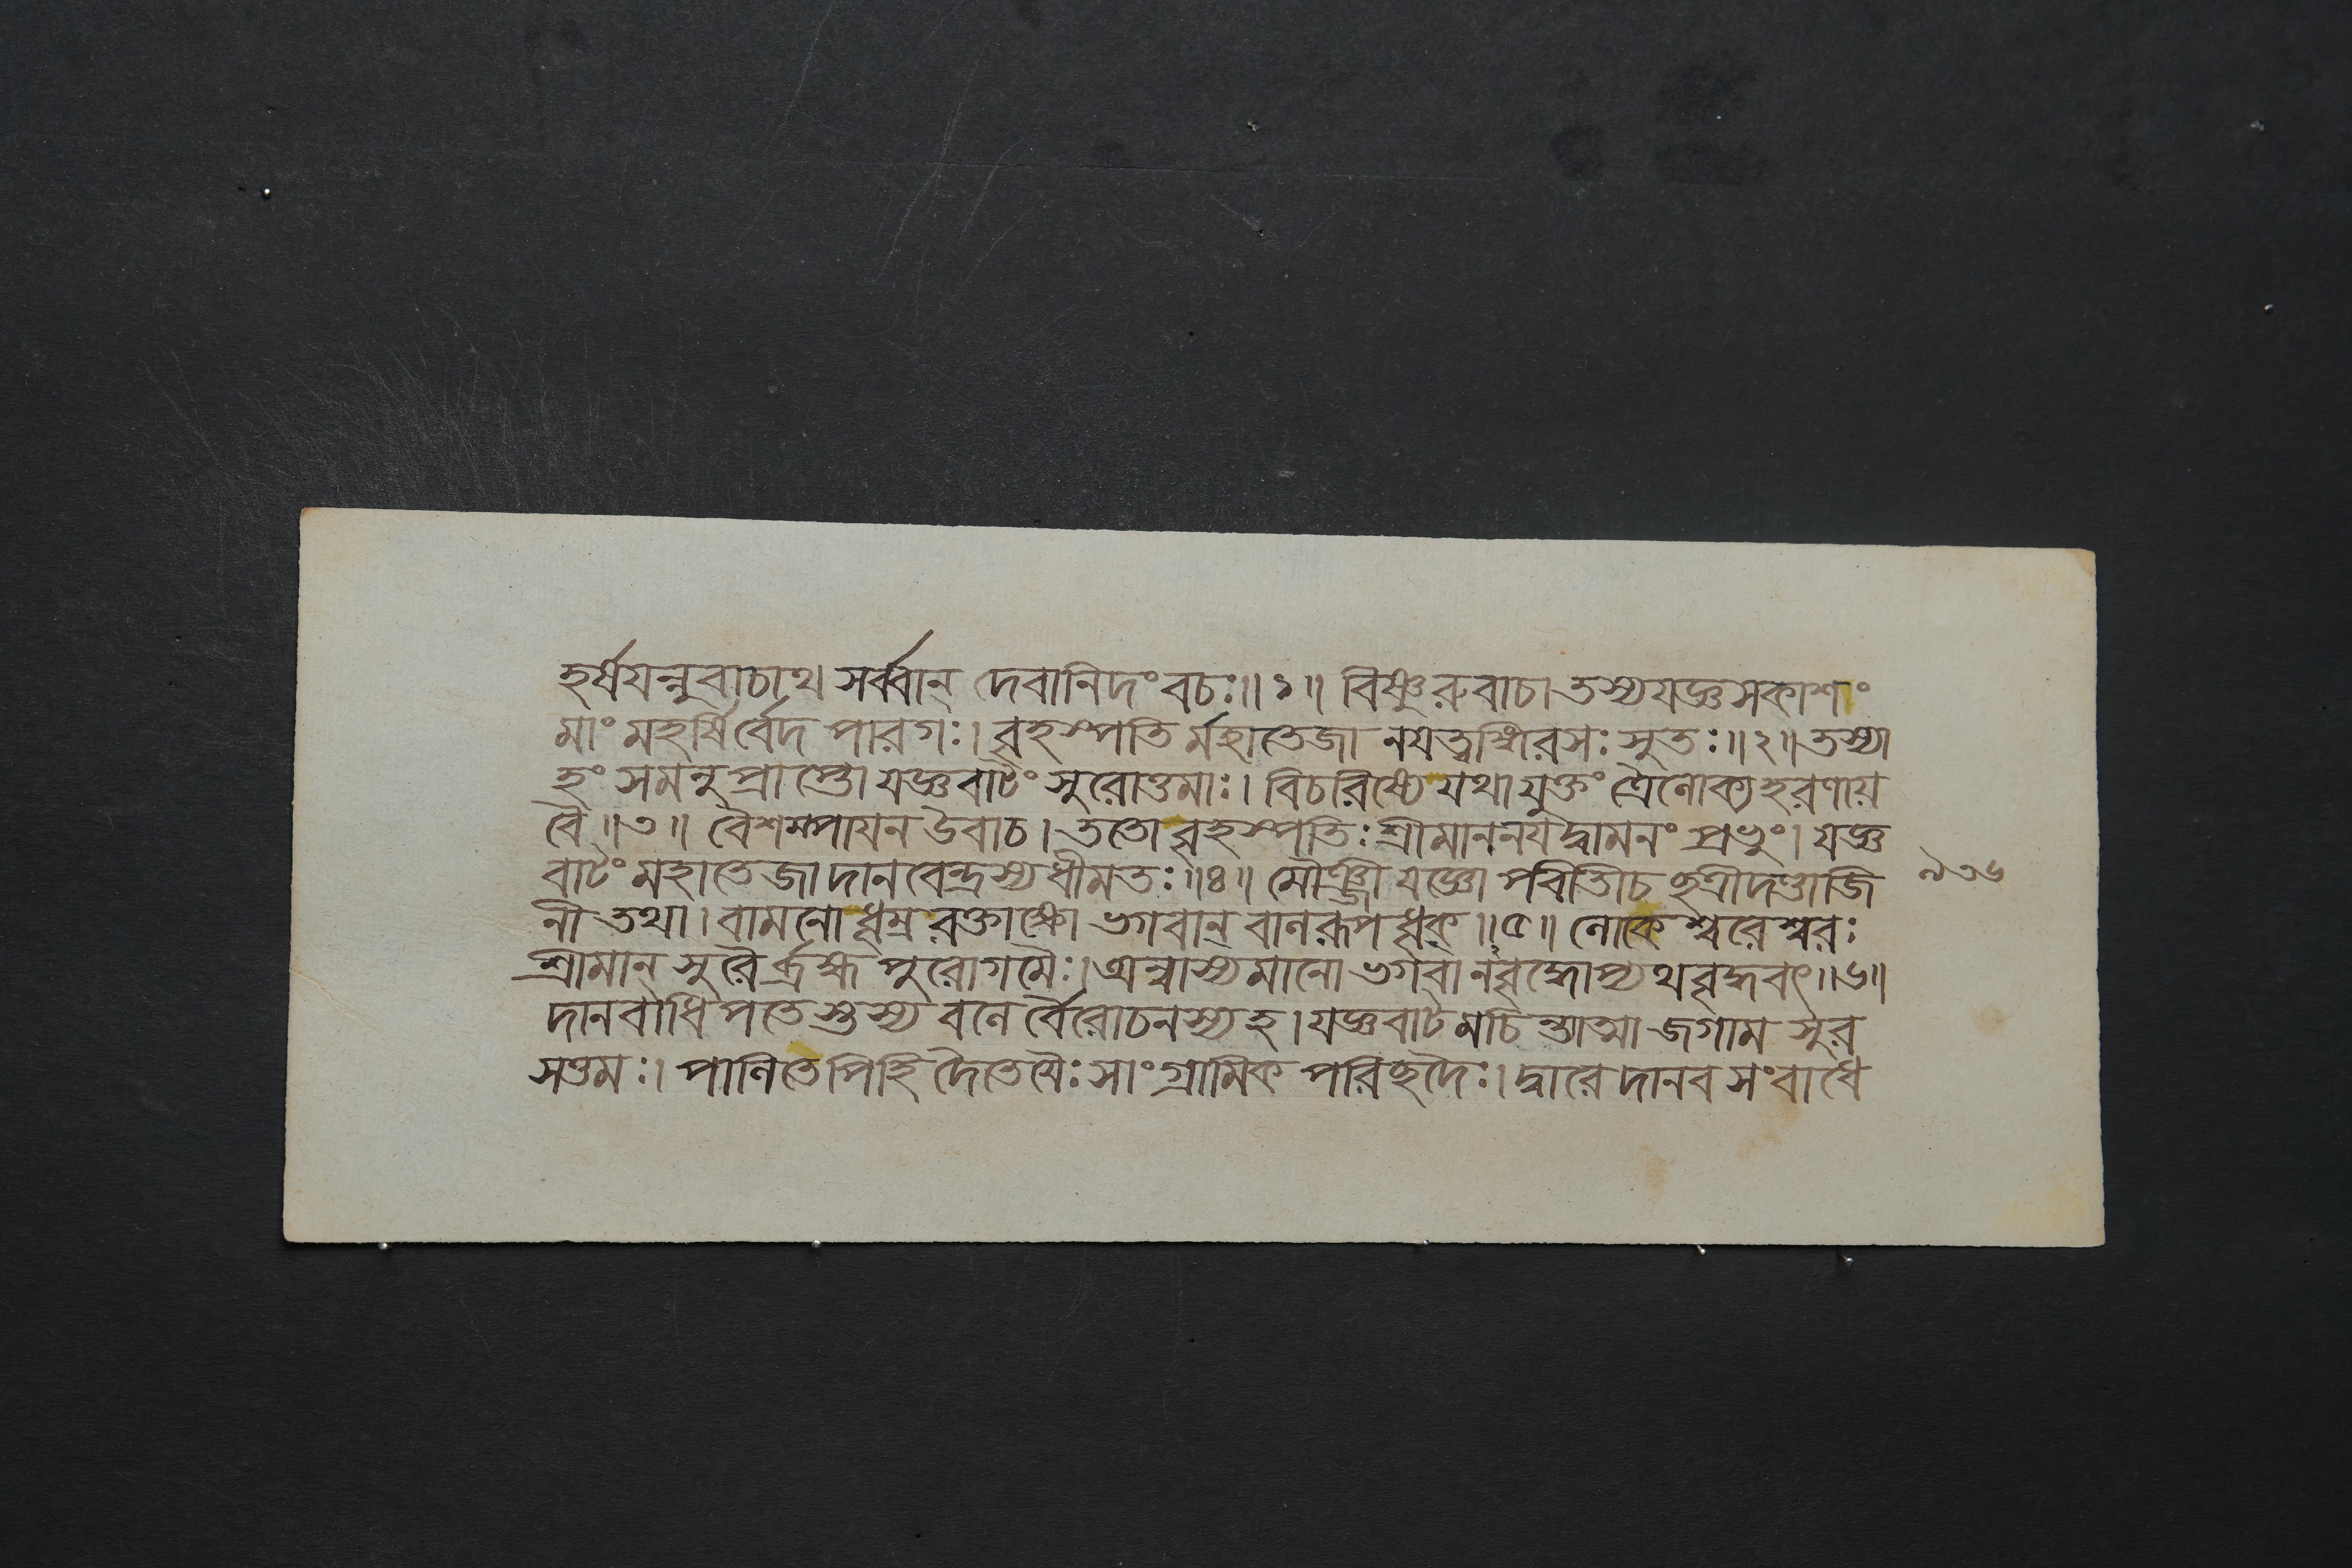 হর্ষযন্নুবাচাথ সর্ব্বান্ দেবানিদং বচঃ॥১॥ বিষ্ণুরুবাচ। তস্য যজ্ঞসকাশং
মাং মহর্ষির্বেদ পারগঃ। বৃহস্পতি র্মহাতেজা নযত্বঙ্গিরসঃ সুতঃ॥২॥ তস্যা
হং সমনুপ্রাপ্তো যজ্ঞবাটং সুরোত্তমাঃ। বিচরিষ্যে যথাযুক্তং ত্রৈলোক্যহরণায়
বৈ॥৩॥ বৈশম্পাযন উবাচ। ততো বৃহস্পতিঃ শ্রীমাননযদ্বামনং প্রভুং। যজ্ঞ
বাটং মহাতেজা দানবেন্দ্রস্য ধীমতঃ॥৪॥ মৌঞ্জী যজ্ঞোপবিতীচ ছত্রীদণ্ডাজি
নী তথা। বামনো ধূম্ররক্তাক্ষো ভগবান্ বালরূপধৃক্॥৫॥ লোকেশ্বরেশ্বরঃ
শ্রীমান্ সুরৈর্ব্রহ্ম পুরোগমৈঃ। অন্বাস্যমানো ভগবান্ বৃদ্ধোপ্যথবৃদ্ধবৎ॥৬॥
দানবাধিপতেস্তস্য বলে র্বৈরোচনস্য হ। যজ্ঞবাটমচিন্ত্যাত্মা জগাম সুর
সত্তমঃ। পালিতেপিহি দৈতেযৈঃ সাংগ্রামিক পরিছদৈঃ। দ্বারে দানব সংবাধে
৯৩৬